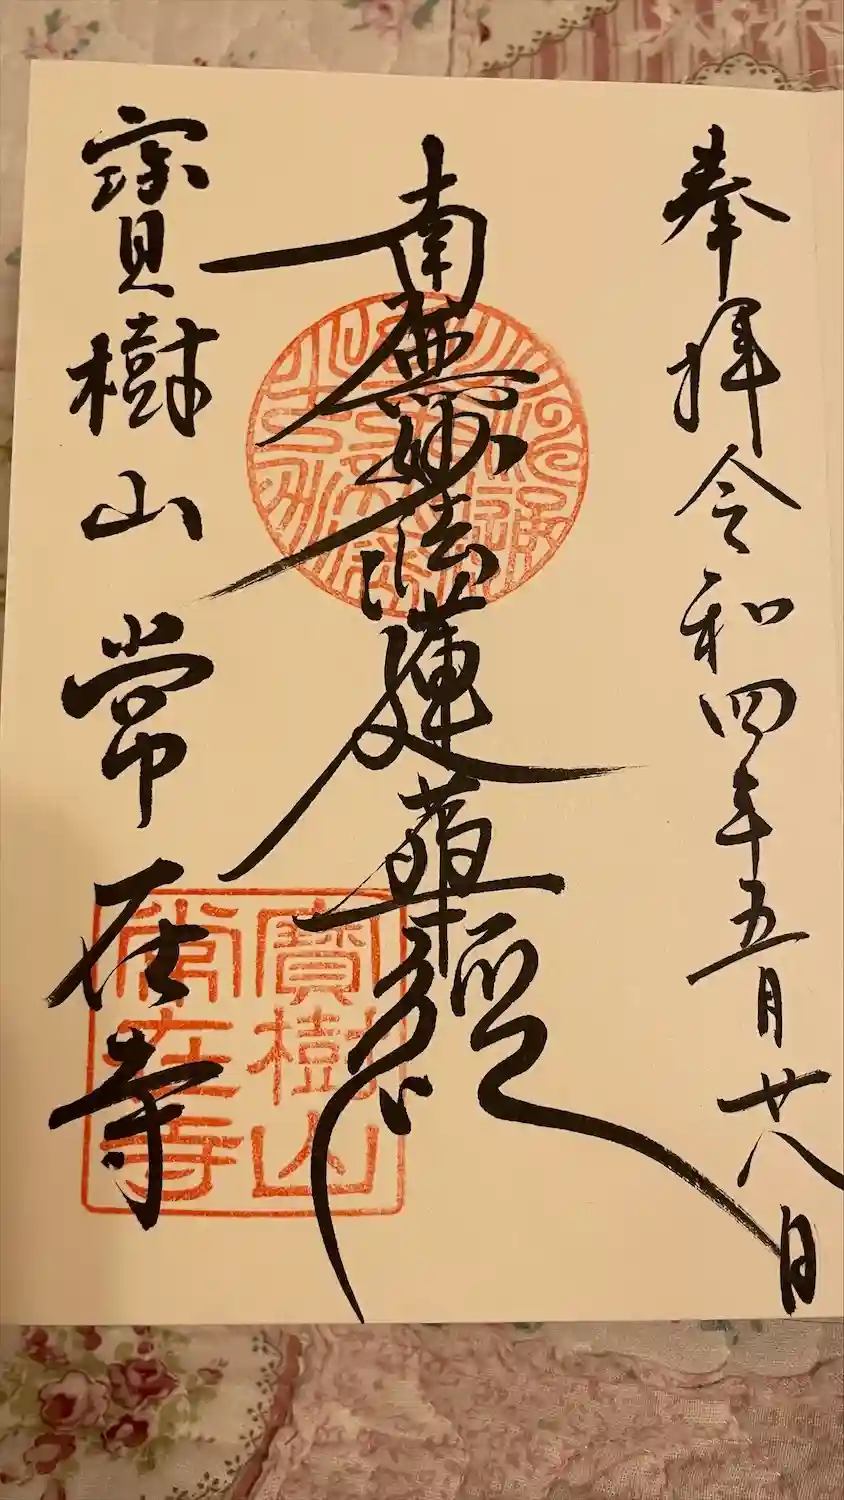 奉拝令和四年五月廿八日
南無妙法蓮華経
寳樹山常在寺
寳樹山
常在寺